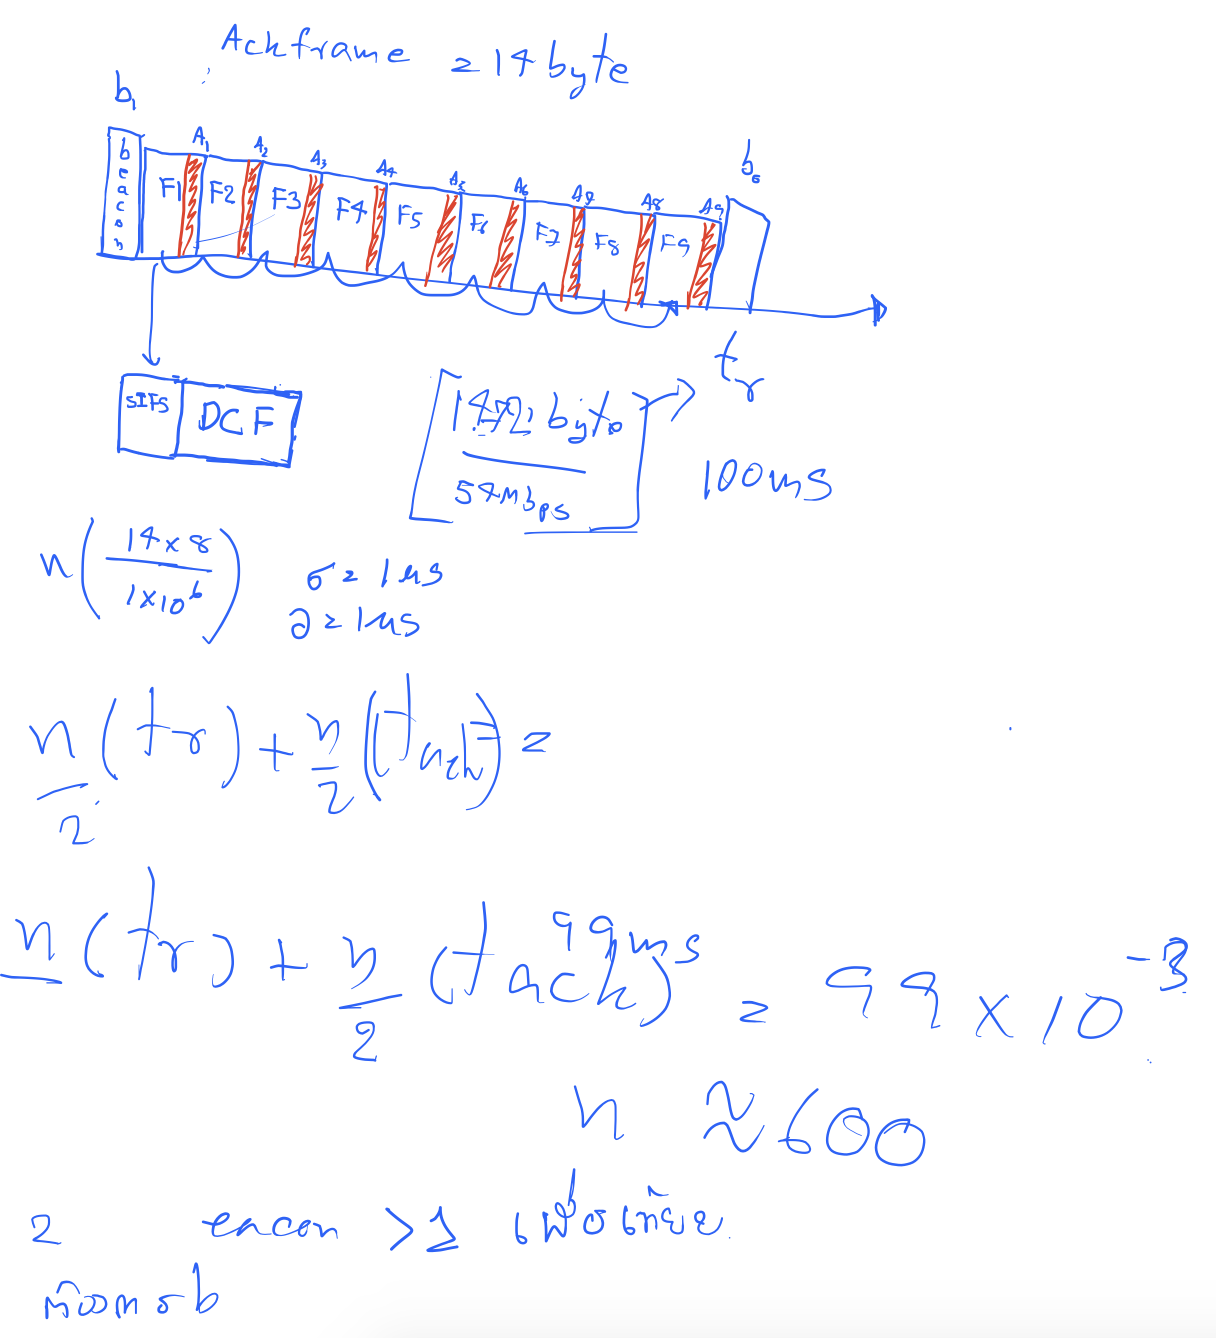 Ackframe = 14 byte
b1
beacon
A1 A2 A3 A4 A5 A6 A7 A8 A9
b0
F1 F2 F3 F4 F5 F6 F7 F8 F9
tr
SIFS DCF
1472 byte
54Mbps
100ms
n(14×8
1×10^6)
σ = 1μs
∂ = 1μs
n/2 (tr) + n/2 (tack) =
99ms
n(tr) + n/2 (tack) = 99 × 10^-3
n ≈ 600
2 eacon >1 เพื่อเทียบ